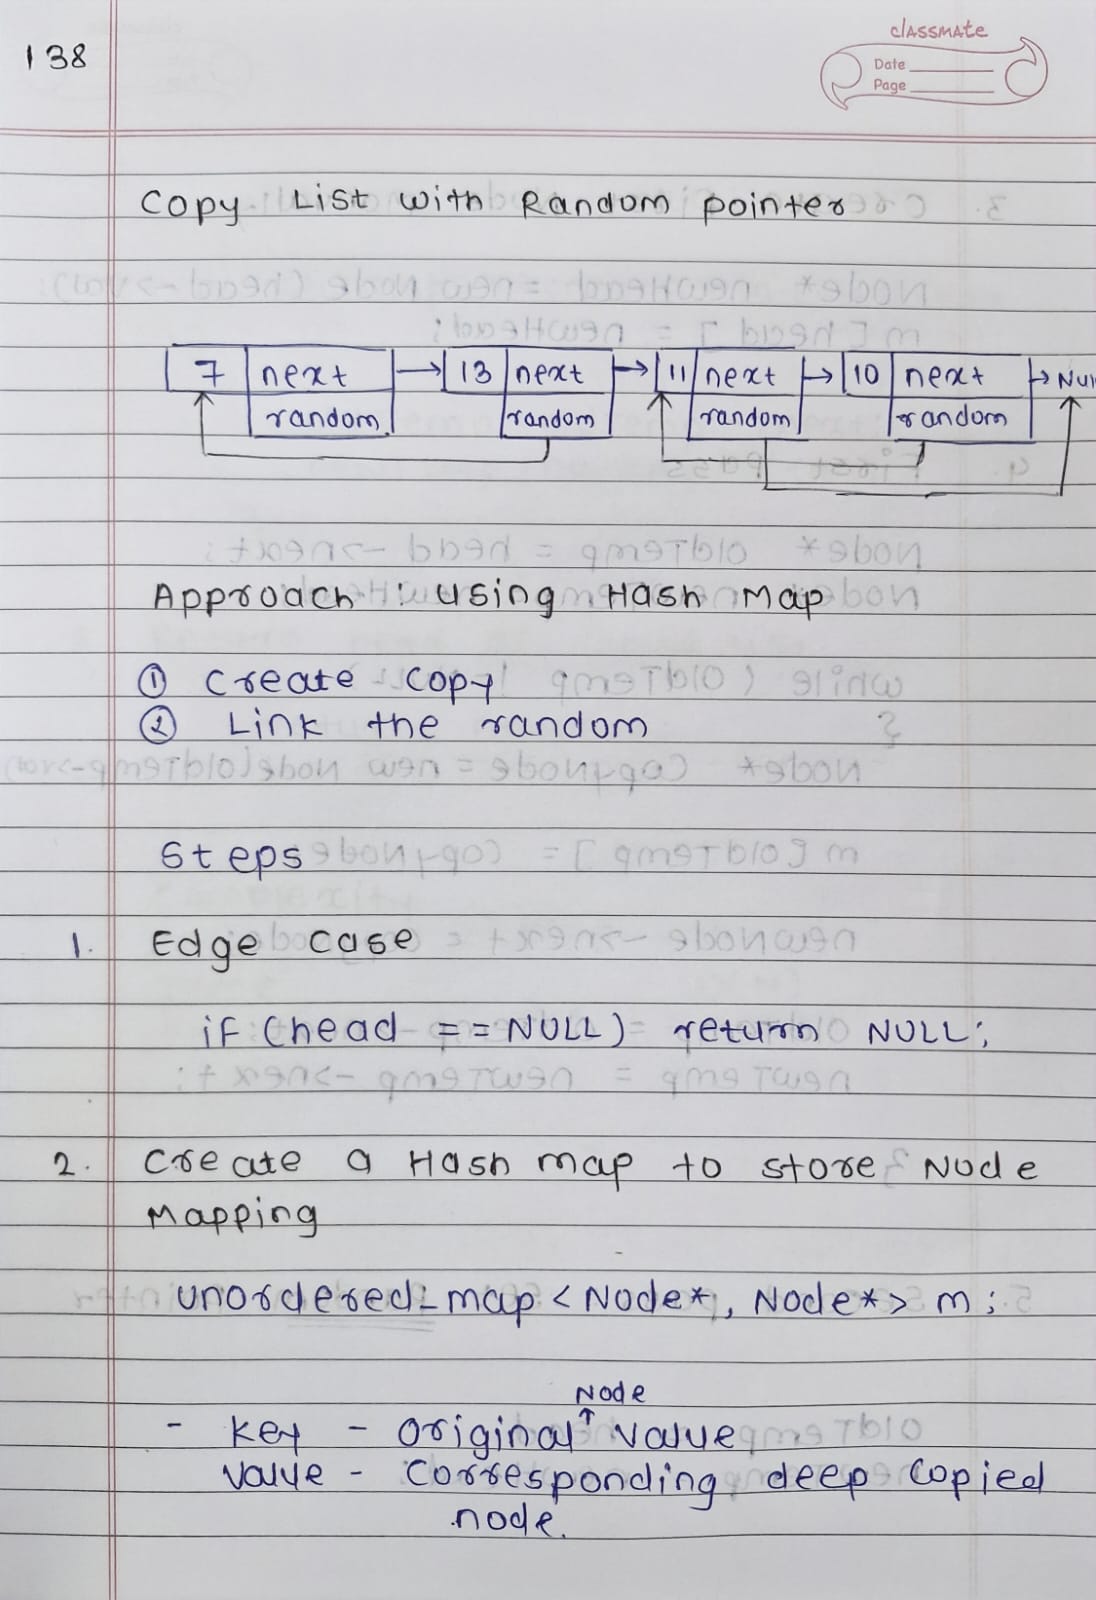 138
classmate
Date
Page
Copy List with Random pointer
7 next 13 next 11 next 10 next Null
random random random random
Approach : using Hash Map
① create copy
② Link the random
Steps
1. Edge case
if (head == NULL) return NULL;
2. Create a Hash map to store Node
Mapping
unordered_map <Node*, Node*> m;
Node
- key - original ↑ value
value - corresponding deep copied
node.